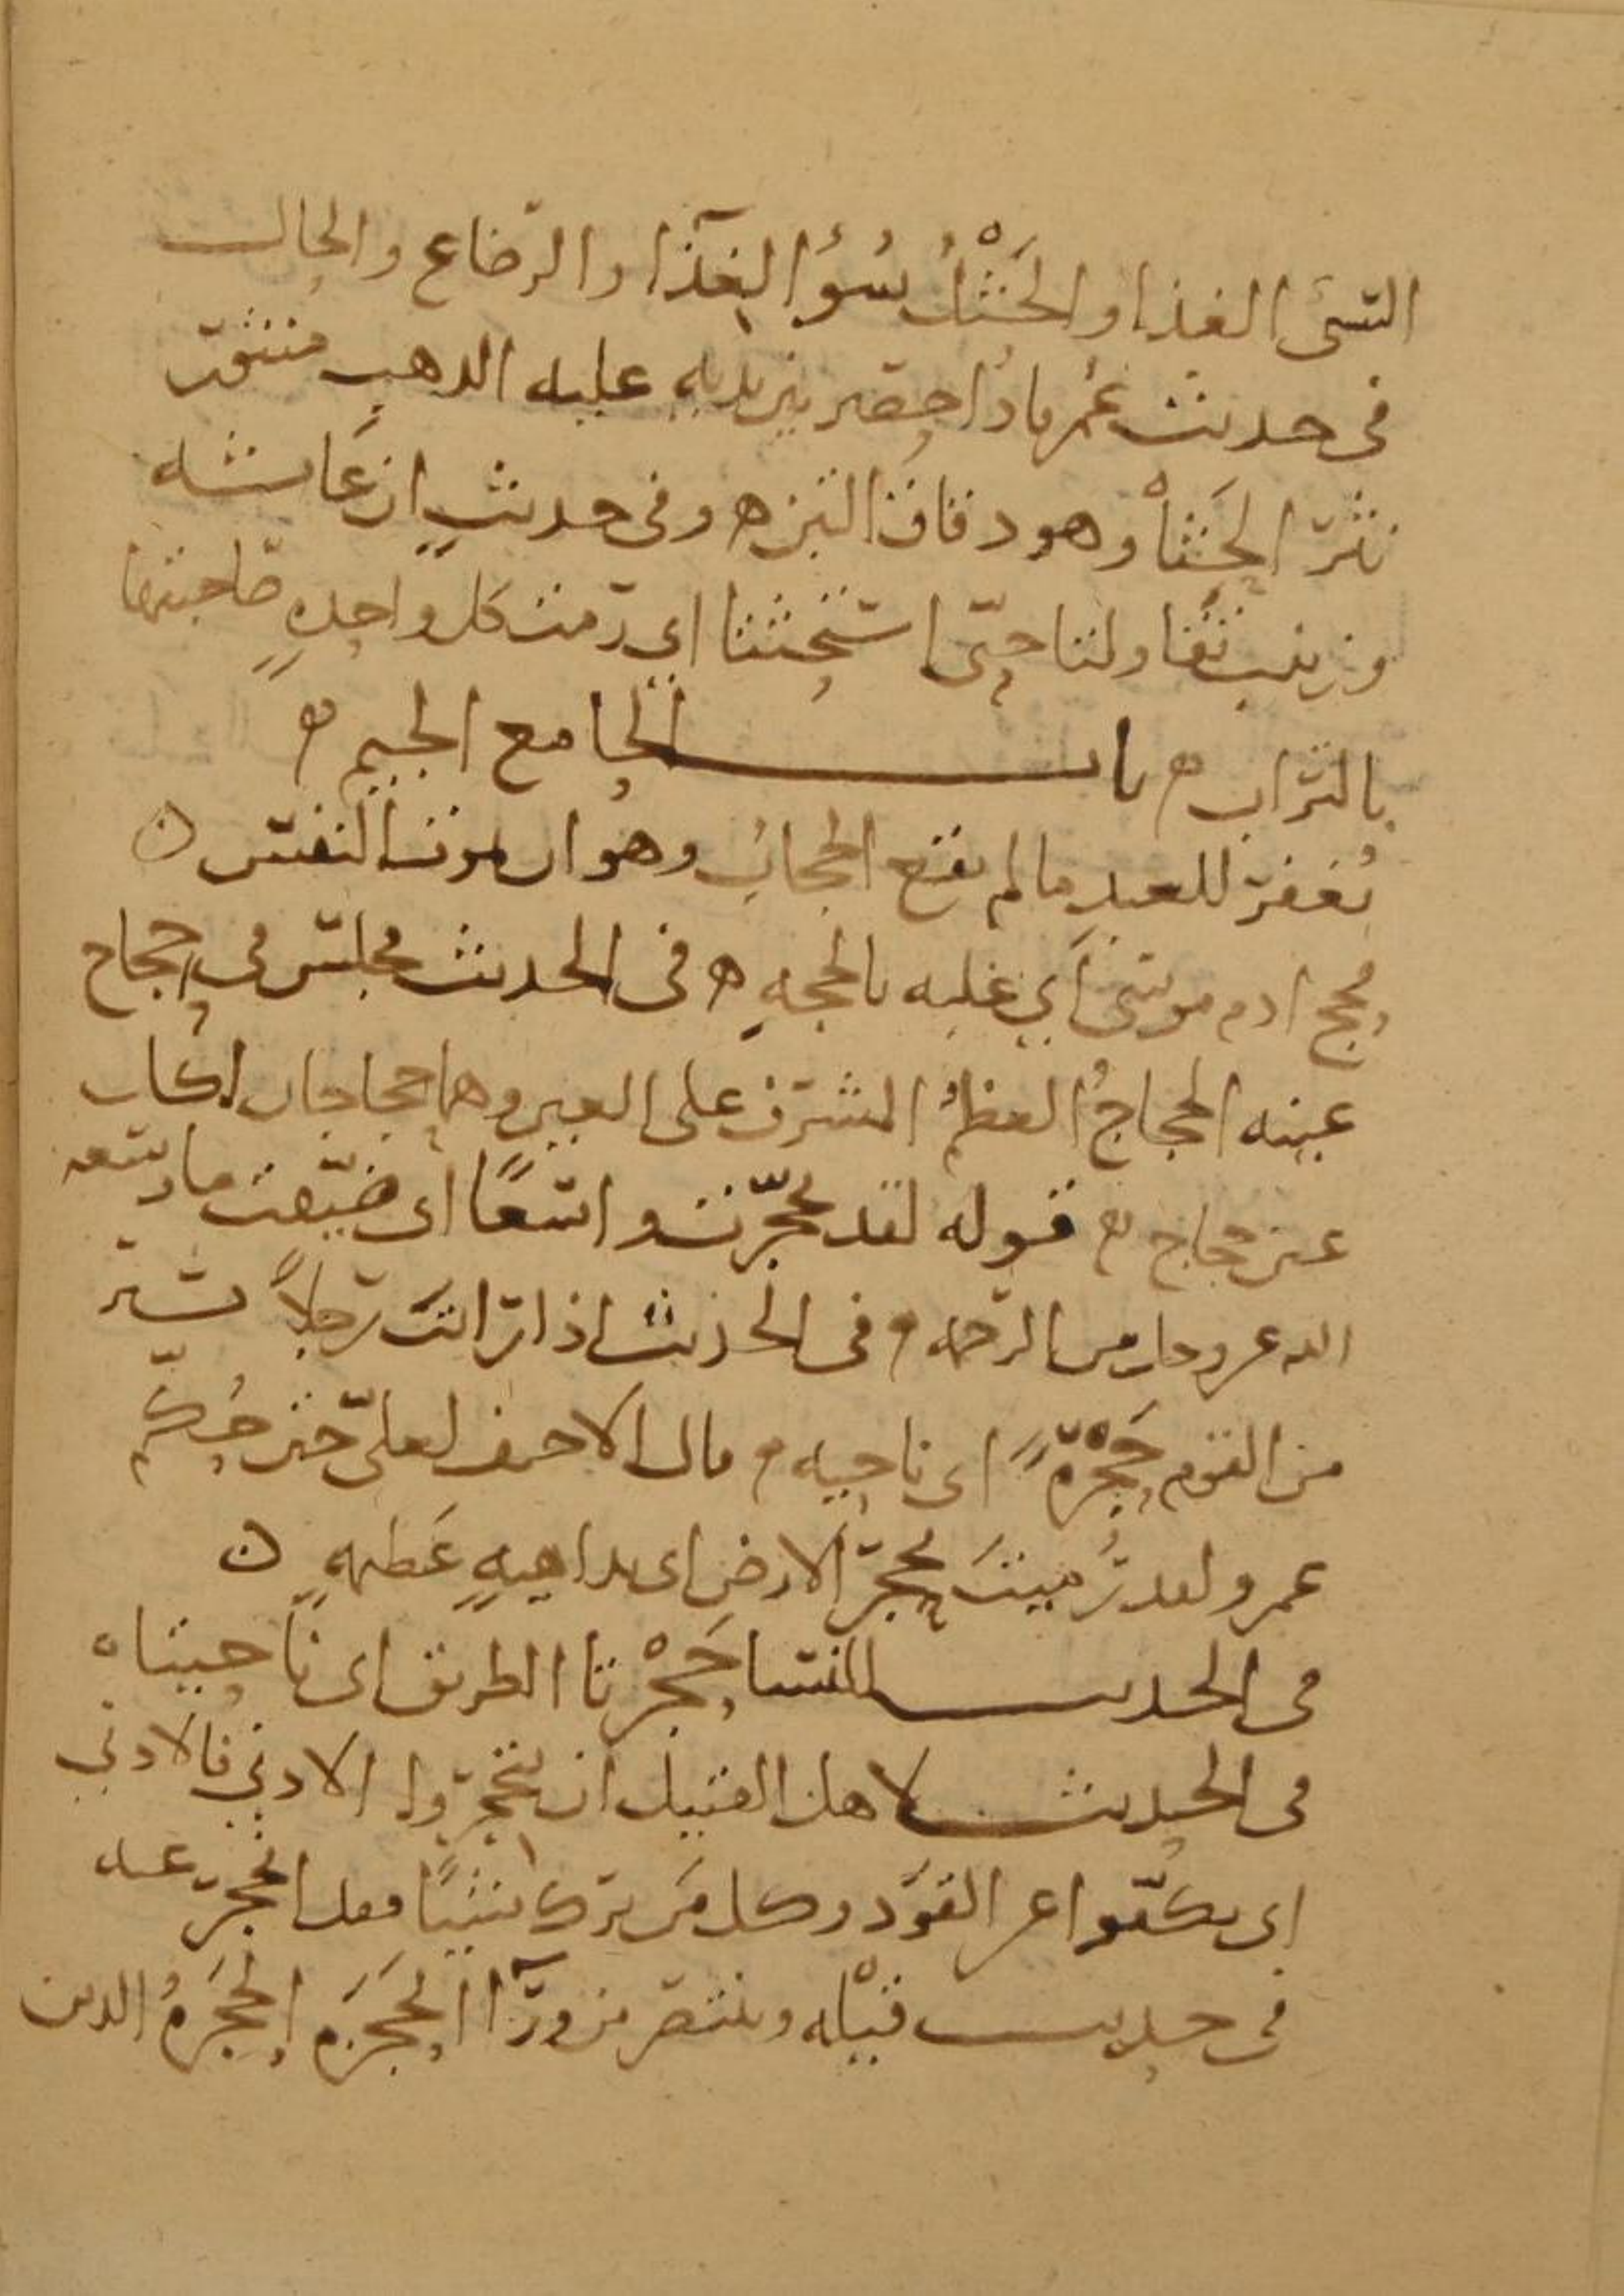 السيئ الغذا والحَثْلُ سُوُ الغذآ والرضاع والحال
في حديث عُمر فاذا حصير بين يديه عليه الذهب منثور
نثر الحَثَا وهو دقاق التبن ه وفي حديثٍ ان عائشه
وزينب تقاولتا حتّى استحثتا اي رمت كل واحدهٍ صاحبتها
بالتراب ه باب الحا مع الجيم ه
يُغفر للعبد ما لم يقع الحجابُ وهو ان تموت النفس ه
فحج ادم موسى اي غلبه بالحجهِ ه في الحديث فجلس في حجاج
عينه الحجاجُ العظمُ المشرف على العين وهما حجاجان لكل
عين حجاج ه قوله لقد تحجّرت واسعًا اي ضيّقت ما وسعه
الله عز وجل من الرحمه ه في الحديث اذا رايت رجلاً يسير
من القوم حَجْرَةً اي ناحيه ه قال الاحنف لعليّ حين حُكّم
عمرو لقد رُميتَ بحجر الارض اي بداهيهٍ عَظيمهٍ ه
في الحديث للنسا حَجْرتا الطريق اي ناحيتاه
في الحديث لاهل القتيل ان ينحجزوا الادني فالادني
اي يكفّوا عن القَوَد وكل من ترك شيئًا فقد انحجز عنه
في حديث قيْله وينتصر من ورآ الحَجَزَه الحَجَزهُ الذين